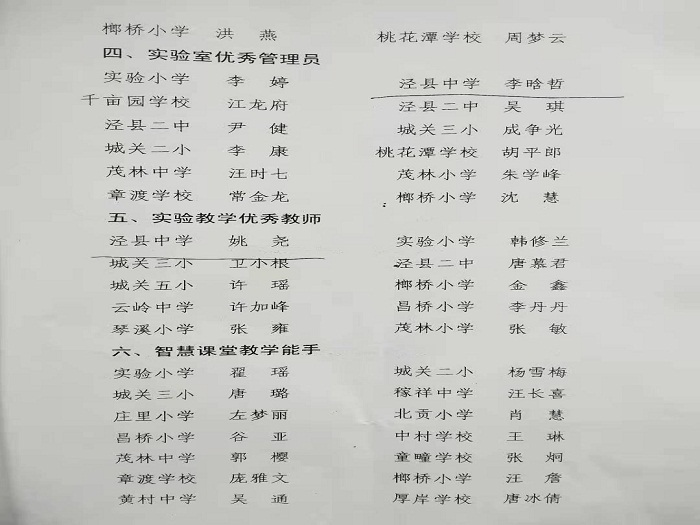 榔桥小学 洪 燕 桃花潭学校 周梦云
四、实验室优秀管理员
实验小学 李 婷 泾县中学 李晗哲
千亩园学校 江龙府 泾县二中 吴 琪
泾县二中 尹 健 城关三小 成争光
城关二小 李 康 桃花潭学校 胡平郎
茂林中学 汪时七 茂林小学 朱学峰
章渡学校 常金龙 榔桥小学 沈 慧
五、实验教学优秀教师
泾县中学 姚 尧 实验小学 韩修兰
城关三小 卫小根 泾县二中 唐慕君
城关五小 许 瑶 榔桥小学 金 鑫
云岭中学 许加峰 昌桥小学 李丹丹
琴溪小学 张 雍 茂林小学 张 敏
六、智慧课堂教学能手
实验小学 翟 瑶 城关二小 杨雪梅
城关三小 唐 璐 稼祥中学 汪长喜
庄里小学 左梦丽 北贡小学 肖 慧
昌桥小学 谷 亚 中村学校 王 琳
茂林中学 郭 樱 童疃学校 张 炯
章渡学校 庞雅文 榔桥小学 汪 詹
黄村中学 吴 通 厚岸学校 唐冰倩